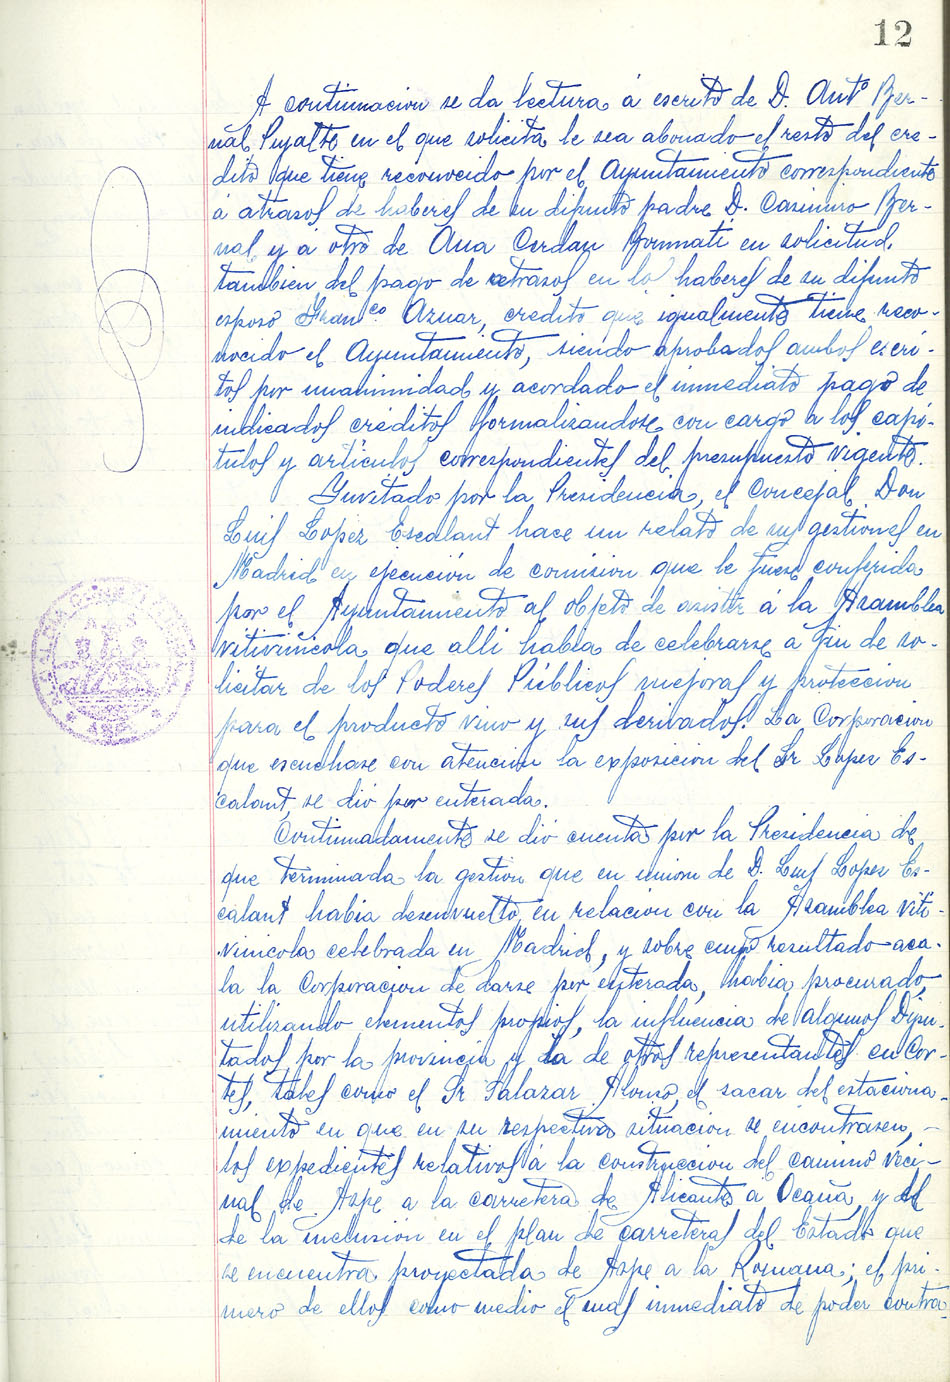 12
A continuacion se da lectura á escrito de D. Antº Ber-
nal Pujalte en el que solicita le sea abonado el resto del cre-
dito que tiene reconocido por el Ayuntamiento correspondiente
á atrasos de haberes de su difunto padre D. Casimiro Ber-
nal y á otro de Ana Cerdan Bonmati en solicitud
tambien del pago de atrasos en los haberes de su difunto
esposo Franco Aznar, credito que igualmente tiene reco-
nocido el Ayuntamiento, siendo aprobados ambos escri-
tos por unanimidad y acordado el inmediato pago de
indicados créditos formalizandose con cargo a los capi-
tulos y articulos correspondientes del presupuesto vigente.
Invitado por la Presidencia, el Concejal Don
Luis Lopez Escalant hace un relato de sus gestiones en
Madrid en ejecución de comision que le fuera conferida
por el Ayuntamiento al objeto de asistir á la Asamblea
vitivinicola que alli habia de celebrarse a fin de so-
licitar de los Poderes Públicos mejoras y proteccion
para el producto vino y sus derivados. La Corporacion
que escuchase con atencion la exposicion del Sr Lopez Es-
calant, se dió por enterada.
Continuadamente se dió cuenta por la Presidencia de
que terminada la gestion que en union de D. Luis Lopez Es-
calant habia desenvuelto en relacion con la Asamblea viti-
vinicola celebrada en Madrid, y sobre cuyo resultado aca-
la la Corporacion de darse por enterada, habia procurado,
utilizando elementos propios, la influencia de algunos Dipu-
tados por la provincia y la de otros representantes en Cor-
tes, tales como el Sr Salazar Alonso, el sacar del estaciona-
miento en que en su respectiva situacion se encontrasen, -
los expedientes relativos á la construccion del camino veci-
nal de Aspe a la carretera de Alicante a Ocaña, y el
de la inclusión en el plan de carreteras del Estado que
se encuentra proyectada de Aspe a la Romana; el pri-
mero de ellos como medio el mas inmediato de poder contra-